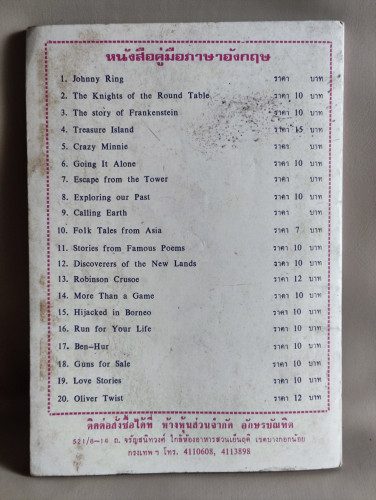 หนังสือคู่มือภาษาอังกฤษ
1. Johnny Ring ราคา บาท
2. The Knights of the Round Table ราคา 10 บาท
3. The story of Frankenstein ราคา 10 บาท
4. Treasure Island ราคา 15 บาท
5. Crazy Minnie ราคา บาท
6. Going It Alone ราคา 10 บาท
7. Escape from the Tower ราคา บาท
8. Exploring our Past ราคา 10 บาท
9. Calling Earth ราคา บาท
10. Folk Tales from Asia ราคา 7 บาท
11. Stories from Famous Poems ราคา 10 บาท
12. Discoverers of the New Lands ราคา 10 บาท
13. Robinson Crusoe ราคา 12 บาท
14. More Than a Game ราคา 10 บาท
15. Hijacked in Borneo ราคา 10 บาท
16. Run for Your Life ราคา 10 บาท
17. Ben-Hur ราคา 10 บาท
18. Guns for Sale ราคา 10 บาท
19. Love Stories ราคา 10 บาท
20. Oliver Twist ราคา 12 บาท
ติดต่อสั่งซื้อได้ที่ ห้างหุ้นส่วนจำกัด อักษรบัณฑิต
521/8-14 ถ. จรัญสนิทวงศ์ ใกล้ห้องอาหารสวนเย็นฤดี เขตบางกอกน้อย
กรุงเทพฯ โทร. 4110608, 4113898